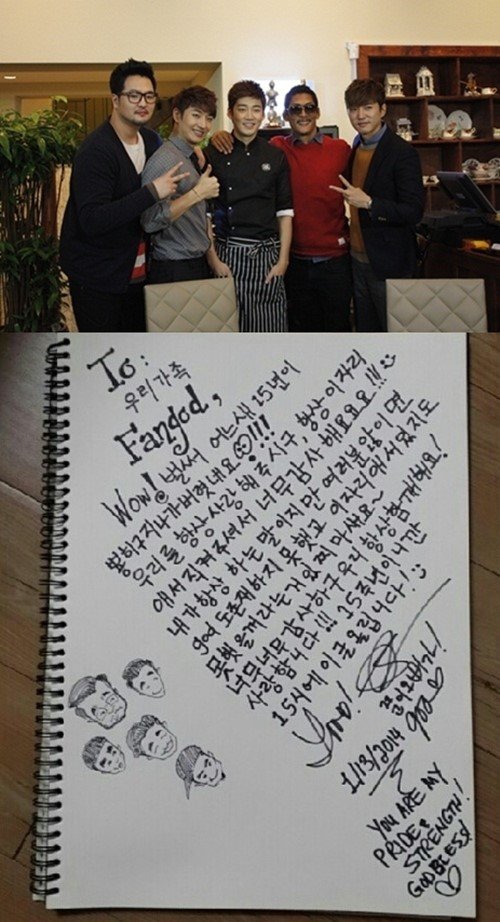 To:
우리가족
Fangod,
Wow! 벌써 어느새 15년이
뿅하구 지나가버렸네요!!!
우리를 항상 사랑해주시구, 항상 이자리
에서 직켜주셔서 너무감사해요요요!!!
내가 항상 하는 말이지만 여러분않이면
god 도 존재하지 못했고 이자리에 서있지도
못햇을게라는거 있찌마새요~
너무너무 감사하구 우리 항상함게해요!
사랑합니다!!! 15주년이니간
15시에 이글올립니다! :)
god
1/13/2014
YOU ARE MY
PRIDE &
STRENGTH!
GOD BLESS!